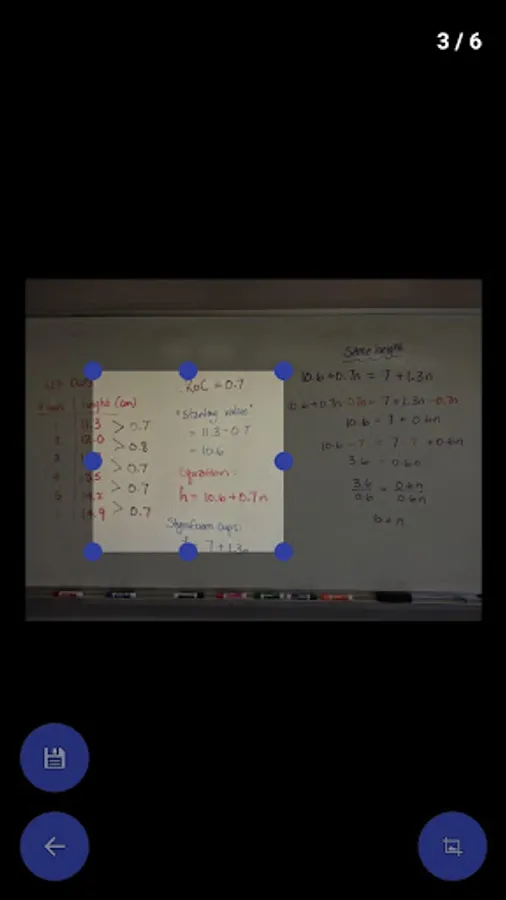 3 / 6
Same height
RoC = 0.7
10.6+0.7n = 7+1.3n
height (cm)
"Starting value"
10.6+0.7n-0.7n = 7+1.3n-0.7n
1 11.3
> 0.7
= 11.3-0.7
10.6 = 7+0.6n
2 12.0
> 0.8
= 10.6
10.6-7 = 7-7+0.6n
3
> 0.7
Equation:
3.6 = 0.6n
4
> 0.7
h = 10.6+0.7n
3.6/0.6 = 0.6n/0.6n
5
14.9
> 0.7
Styrofoam cups:
6=n
7+1.3n